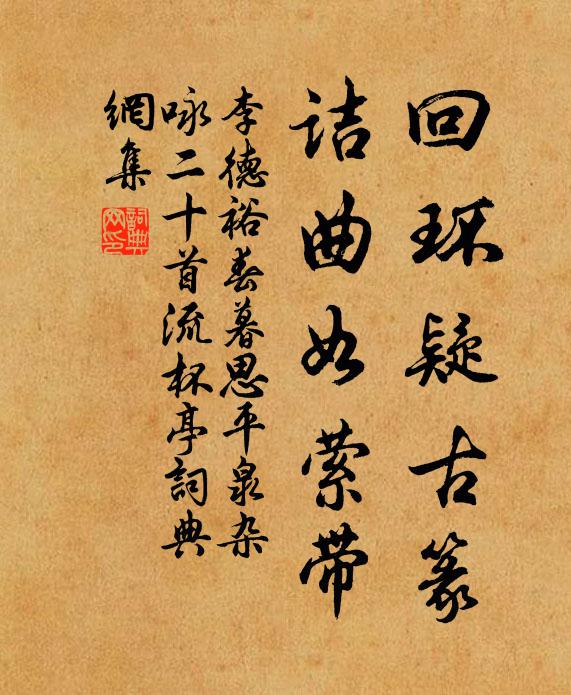 回环疑古篆
诘曲如萦带
李德裕春暮思平泉杂
咏二十首流杯亭词典
网集
词典网印